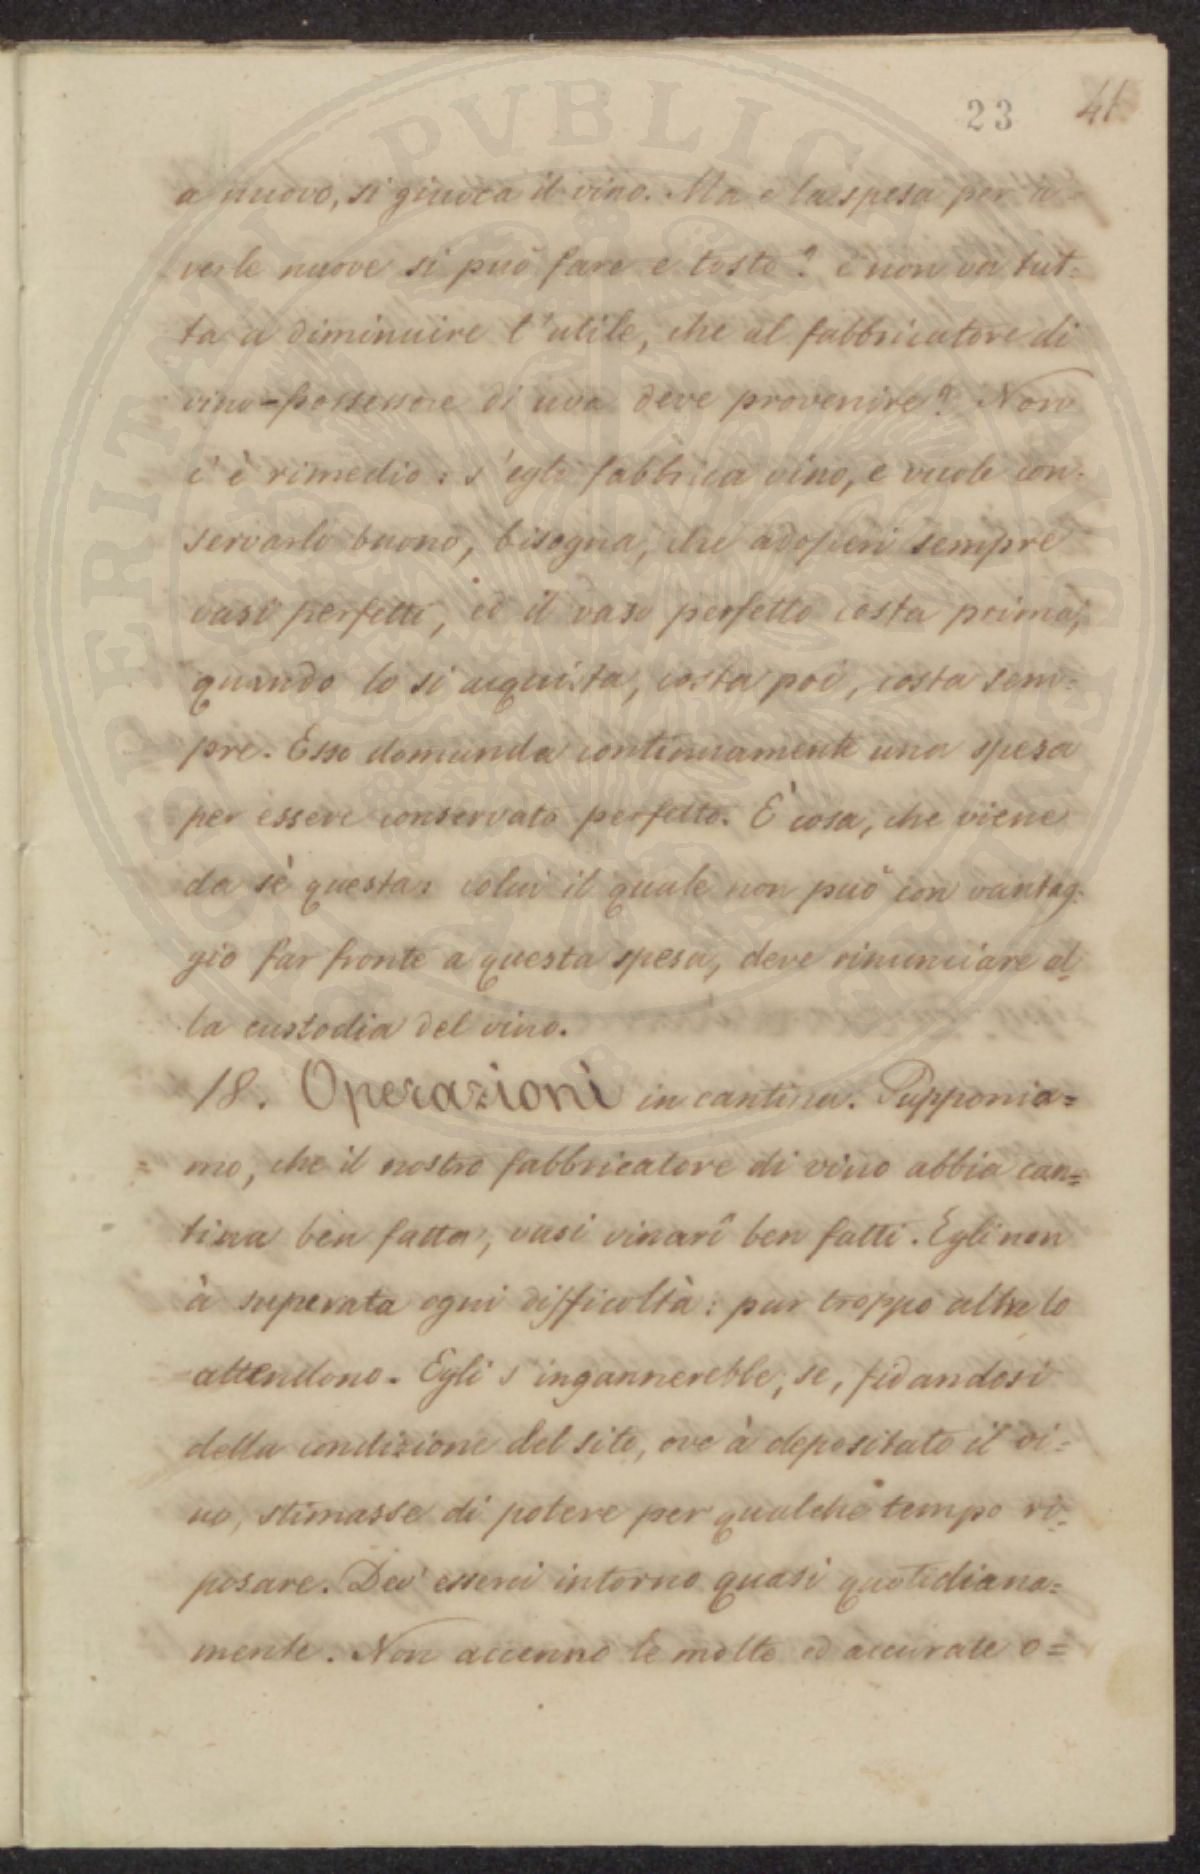 23 41
a nuovo, si giuoca il vino. Ma e la spesa per a-
verle nuove si può fare e tosto? e non va tut-
ta a diminuire l'utile, che al fabbricatore di
vino-possessore di uva deve provenire? Non
c'è rimedio: s'egli fabbrica vino, e vuole con-
servarlo buono, bisogna, che adoperi sempre
vasi perfetti, ed il vaso perfetto costa prima,
quando lo si acquista, costa poi, costa sem-
pre. Esso domanda continuamente una spesa
per essere conservato perfetto. È cosa, che viene
da sè questa: colui il quale non può con vantag-
gio far fronte a questa spesa, deve rinunciare al-
la custodia del vino.
18. Operazioni in cantina. Supponia=
mo, che il nostro fabbricatore di vino abbia can=
tina ben fatta, vasi vinarî ben fatti. Egli non
à superata ogni difficoltà: pur troppo altre lo
attendono. Egli s'ingannerebbe, se, fidandosi
della condizione del sito, ove à depositato il vi=
no, stimasse di potere per qualche tempo ri=
posare. Dev'esserci intorno quasi quotidiana=
mente. Non accenno le molte ed accurate o=
PROSPERITATI PVBLICAE AVGENDAE